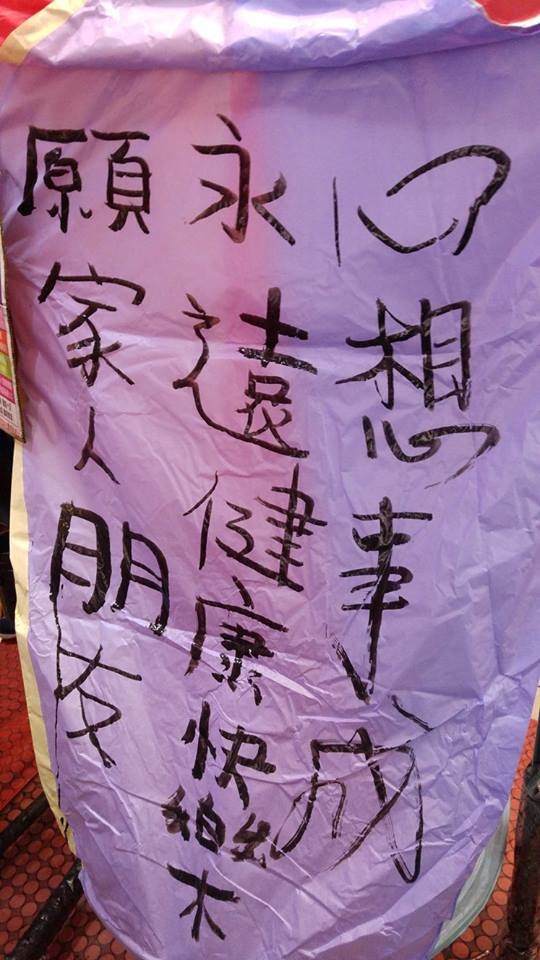 願家人朋友
永遠健康快樂
心想事成